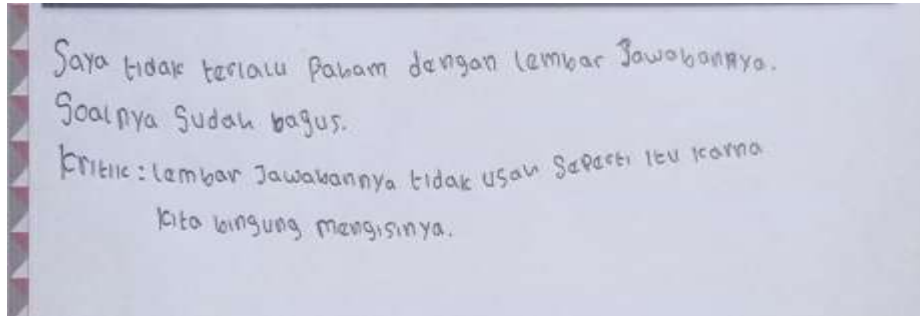 Saya tidak terlalu Paham dengan lembar Jawabannya.
Soalnya Sudah bagus.
Kritik : lembar Jawabannya tidak usah Seperti itu karna
kita bingung mengisinya.